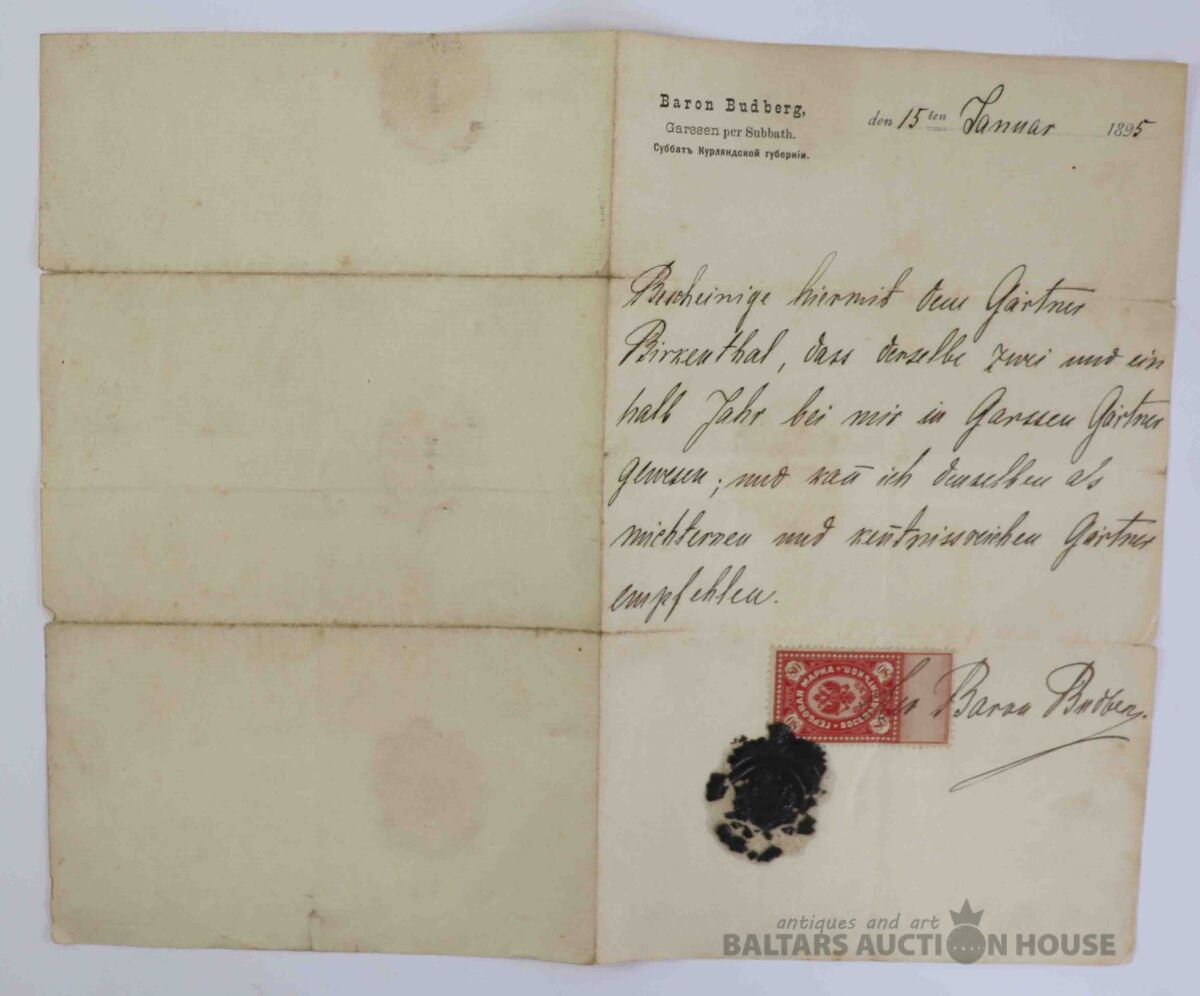 Baron Budberg,
Garssen per Subbath.
Суббатъ Курляндской губерніи.
den 15ten Januar 1895
Bescheinige hiermit dem Gärtner
Birkenthal, dass derselbe zwei und ein
halb Jahr bei mir in Garssen Gärtner
gewesen; und kan̄ ich denselben als
nüchternen und ken̄tnissreichen Gärtner
empfehlen.
ГЕРБОВАЯ МАРКА
80
80
80
Baron Budberg.
antiques and art
BALTARS AUCTION HOUSE